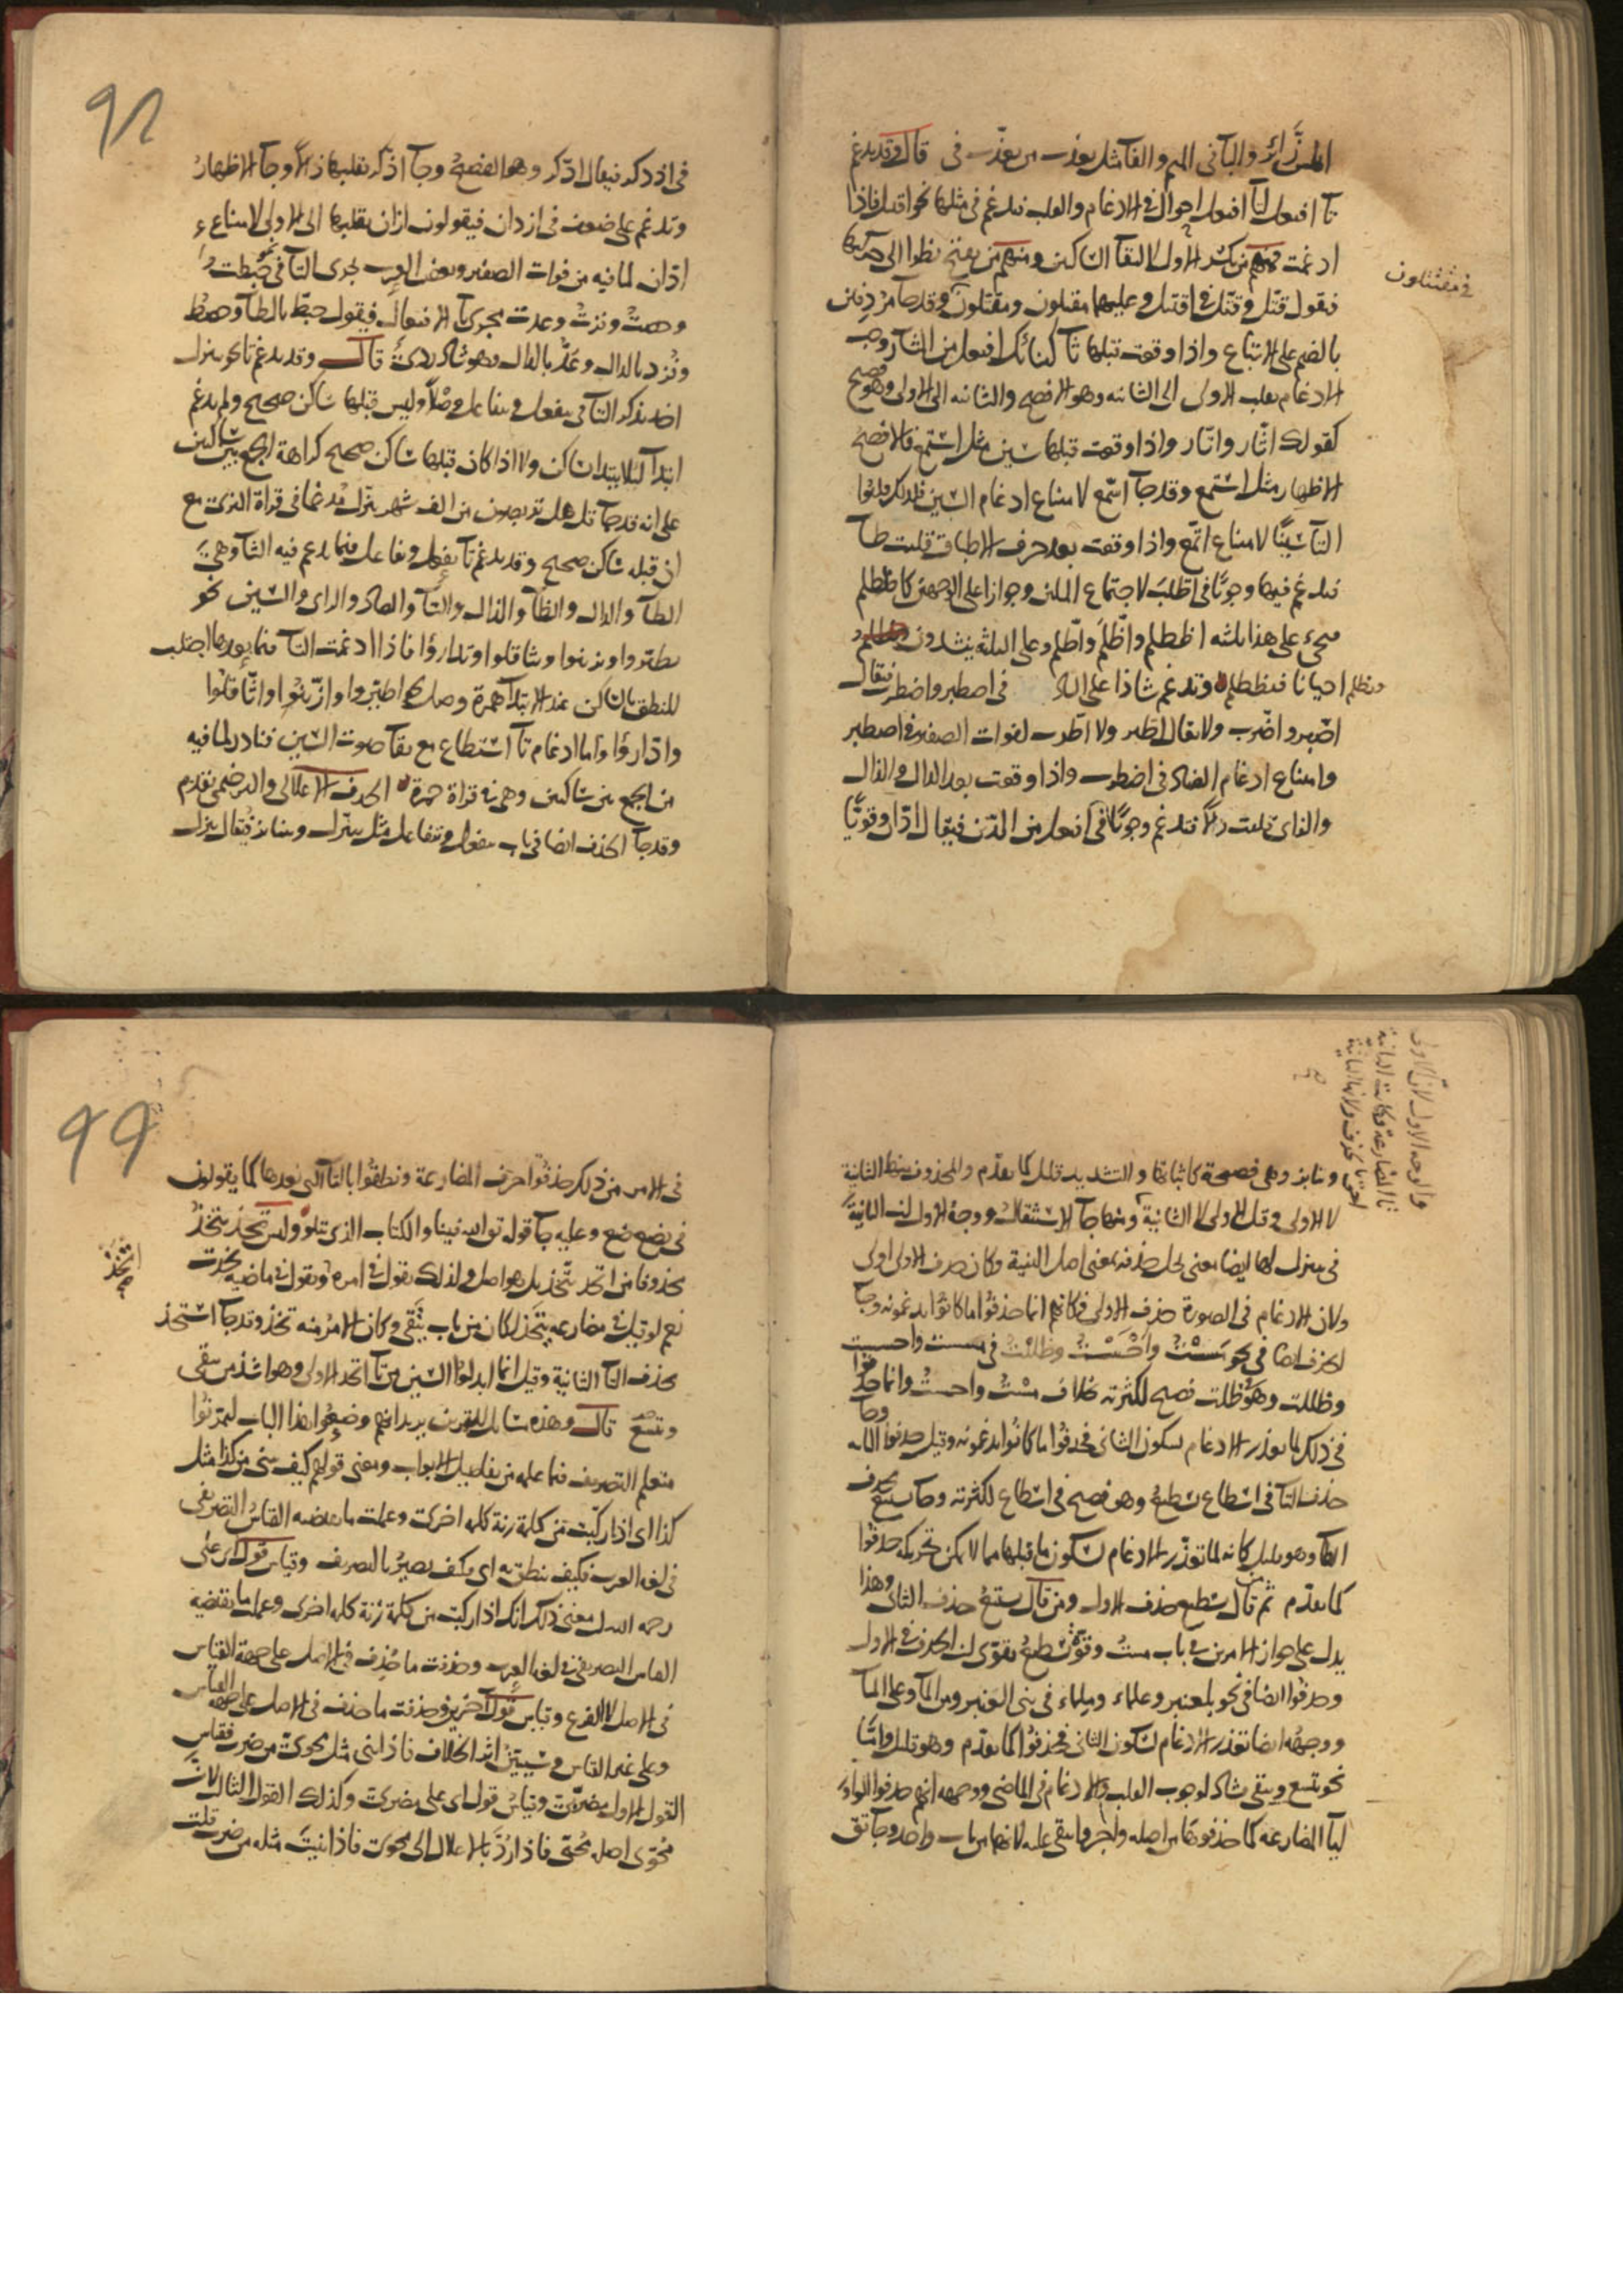 المن زائر والبا في الميم والفا مثل يعذب من يعذب في قال وقد تدغم
تا افتعل لتا افتعل احوال في الادغام والقلب تدغم في مثلها نحو اقتتل فاذا
ادغمت فمنهم من يكسر الاول لالتقا الساكنين ومنهم من يفتح نظرا الى حركتها
فيقول قتّل وقتّل في اقتتل وعليهما مقتلون ومقتلون وقد جا مردفين
في مقتتلون
بالضم على الاتباع واذا وقعت قبلها ثا كبنائك افتعل من الثار وجب
الادغام بقلب الاولى الى الثانيه وهو الافصح والثانيه الى الاولى وهو فصيح
كقولك اثّار واتّار واذا وقعت قبلها سين مثل استمع فالافصح
الاظهار مثل استمع وقد جا اسّمع لامتناع ادغام السين فلذلك قلبوا
التا سينًا لامتناع اتّمع واذا وقعت بعد حرف الاطباق قلبت طا
فتدغم فيها وجوبًا في اطّلب لاجتماع المثلين وجوازا على الوجهين كاظطلم
يجيء على هذا ثلثه اظطلم واظّلم واطّلم وعلى الثلثة ينشدون
ويظلم احيانا فيظطلم وتدغم شاذا على الثاني في اصطبر واضطرب فيقال
اصّبر واضّرب ولا يقال اطّبر ولا اطّرب لفوات الصفير في اصطبر
وامتناع ادغام الضاد في اضطرب واذا وقعت بعد الدال والذال
والزاي قلبت دالًا فتدغم وجوبًا في افتعل من الدين فيقال ادّان وقويًّا
٩٨
في اذدكر فيقال ادّكر وهو الفصيح وجا اذّكر بقلبها ذالًا وجا الاظهار
وتدغم على ضعف في ازدان فيقولون ازّان بقلبها الى الاولى لامتناع
ادّان لما فيه من فوات الصفير وبعض العرب يجري التا في نحو خبطت
وحصت وفزت وعدت مجرى تا الافتعال فيقول خبطّ بالطا وحصط
وفزد بالدال وعدّ بالدال وهو شاذ ردي قال وقد تدغم تا نحو تتنزل
اخذ يذكر التا في تتفعل وتتفاعل وصلًا وليس قبلها ساكن صحيح ولم يدغم
ابتدا لئلا يبتدا بساكن ولا اذا كان قبلها ساكن صحيح كراهة الجمع بين ساكنين
على انه قد جا قل هل تربصون من الف شهر تنزل مدغما في قراة البزي مع
ان قبله ساكن صحيح وقد تدغم تا تفعل وتفاعل فيما تدغم فيه التا وهي
الطا والدال والظا والذال والثا والصاد والزاي والسين نحو
تطيروا وتزينوا وتثاقلوا وتدارؤا فاذا ادغمت التا فيما بعدها اجتلب
للنطق بالساكن عند الابتدا همزة وصل كاطّيروا وازّينوا واثّاقلوا
وادّارؤا واما ادغام تا استطاع مع بقا صوت السين فنادر لما فيه
من الجمع بين ساكنين وهي في قراة حمزة الحذف الاعلالي والترخيمي تقدم
وقد جا الحذف ايضا في باب تتفعل وتتفاعل مثل تتنزل وتتنابز فيقال تنزل
والوجه الاول لان الاولى
تا المضارعة وكانت الثانية
احق بالحذف ولانها الثانية
صح
وتنابز وهي فصيحة كاثباتها والتشديد قليل كما تقدم والمحذوف منها الثانية
لا الاولى وقيل الاولى لا الثانية وانما جا الاستثقال ووجه الاول ان الثانية
في تتنزل لها ايضا معنى يخل حذفه بمعنى اصل البنية وكان حذف الاولى اولى
ولان الادغام في الصورة حذف الاولى فكانهم انما حذفوا ما كانوا يدغمونه وجا
الحذف ايضا في نحو مسْتُ واَحَسْتُ وظلْتُ في مسست واحسست
وظللت وهو في ظلت فصيح لكثرته بخلاف مست واحست وانما حذفوا
في ذلك لما تعذر الادغام لسكون الثاني فحذفوا ما كانوا يدغمونه وقيل حذفوا الثانيه وجا
حذف التا في اسطاع يسطيع وهو فصيح في اسطاع لكثرته وجا يستيع بحذف
الطا وهو قليل كانه لما تعذر الادغام لسكون ما قبلها مما لا يمكن تحريكه حذفوا
كما تقدم ثم من قال يسطيع حذف الاول ومن قال يستيع حذف الثاني وهذا
يدل على جواز الامرين في باب مست وقوة يسطيع تقوي ان الحذف في الاول
وحذفوا ايضا في نحو بلعنبر وعلماء وملماء في بني العنبر ومن الما وعلى الما
ووجهه ايضا تعذر الادغام لسكون الثاني فحذفوا كما تقدم وهو قليل واما
نحو يتسع ويتقي شاذ لوجوب القلب والادغام في الماضي ووجهه انهم حذفوا الواو
ليا المضارعه كما حذفوها من اصله واجروا يتقي عليه لانهما من باب واحد وجا تق
٩٩
في الامر من ذلك حذفوا حرف المضارعة ونطقوا بالتا التي بعدها كما يقولون
في يضع ضع وعليه جا قوله تق الله فينا والكتاب الذي تتلو وليس تخذ يتخذ
محذوفا من اتخذ يتّخذ بل هو اصل ولذلك تقول في امره وتقول في ماضيه تخذت
اتخذ صح
نعم لو قيل في مضارعه يتخذ لكان من باب يتقي وكان الامر منه تخذ وقد جا استخذ
بحذف التا الثانية وقيل انما ابدلوا السين من تا اتخذ الاولى وهو اشذ من يتقي
ويتسع قال وهذه مسائل للتمرين يريد انهم وضعوا هذا الباب ليمرنوا
متعلم التصريف فيما علمه من تفاصيل الابواب ومعنى قولهم كيف تبني من كذا مثل
كذا اي اذا ركبت من كلمة زنة كلمه اخرى وعملت ما يقتضيه القياس التصريفي
في لغه العرب فكيف تنطق به اي وكيف يصير بالتصريف وقياس قول ابي علي
رحمه الله ان معنى ذلك انك اذا ركبت من كلمة زنة كلمه اخرى وعملت ما يقتضيه
القياس التصريفي في لغه العرب وحذفت ما حذف في الاصل على جهة القياس
في الاصل لا الفرع وقياس قول آخرين وحذفت ما حذف في الاصل على جهه القياس
وعلى غير القياس وسيتبين اثر الخلاف فاذا بني مثل محوي من ضرب فقياس
القول الاول مضربيّ وقياس قول ابي علي مضريّ وكذلك القول الثالث لان
محوي اصله محيّي فاذا ردّ بالاعلال الى محوي فاذا بنيت مثله من ضرب قلت